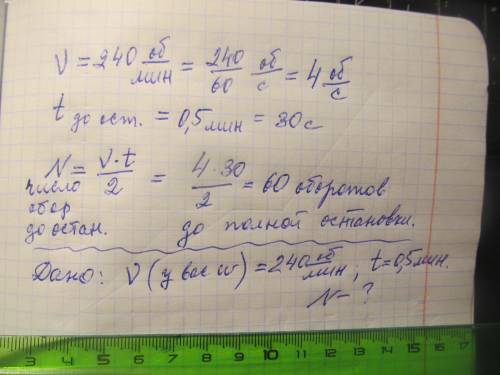 ν = 240 об/мин = 240/60 об/с = 4 об/с
t до ост. = 0,5 мин = 30 с
N = ν·t/2 = 4·30/2 = 60 оборотов
число
обор
до остан. до полной остановки.
Дано: ν (у вас ω) = 240 об/мин; t = 0,5 мин.
N – ?
3 4 5 6 7 8 9 10 11 12 13 14 15 16 17